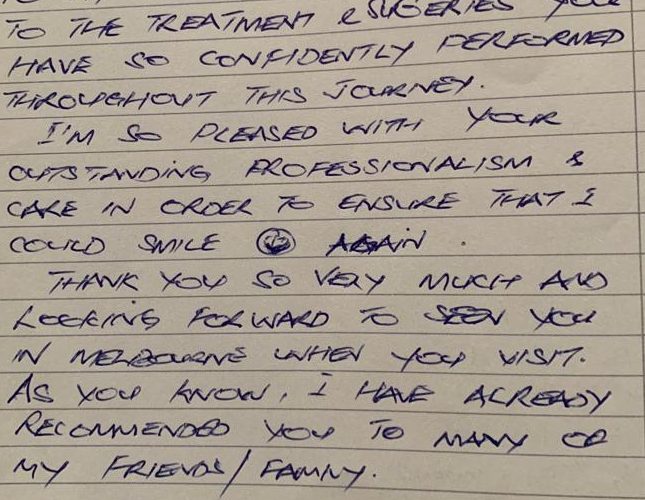 TO THE TREATMENT & SUGERIES YOU
HAVE SO CONFIDENTLY PERFORMED
THROUGHOUT THIS JOURNEY.
I'M SO PLEASED WITH YOUR
OUTSTANDING PROFESSIONALISM &
CARE IN ORDER TO ENSURE THAT I
COULD SMILE ☺ AGAIN.
THANK YOU SO VERY MUCH AND
LOOKING FORWARD TO SEEN YOU
IN MELBOURNE WHEN YOU VISIT.
AS YOU KNOW, I HAVE ALREADY
RECOMMENDED YOU TO MANY OF
MY FRIENDS/FAMILY.